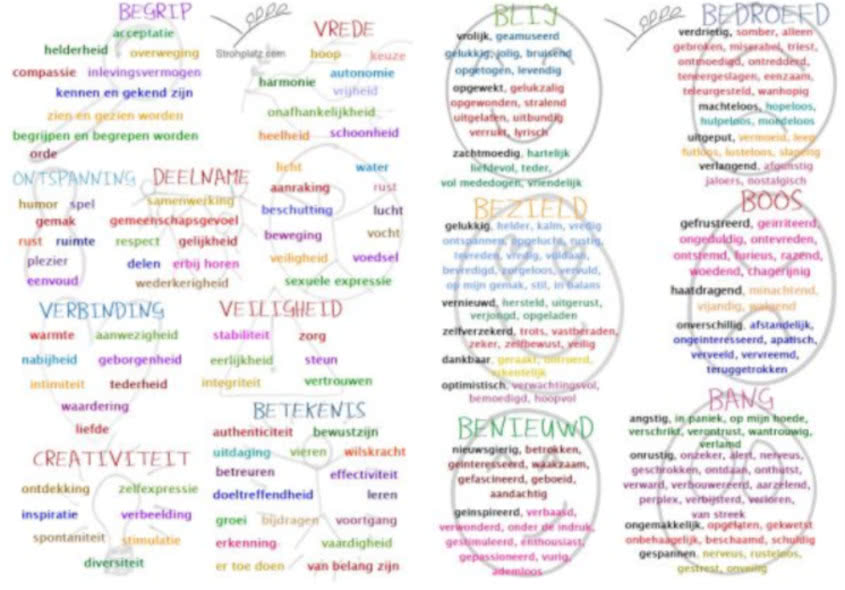 BEGRIP
acceptatie
helderheid overweging
compassie inlevingsvermogen
kennen en gekend zijn
zien en gezien worden
begrijpen en begrepen worden
orde
Strohplatz.com
VREDE
hoop keuze
autonomie
harmonie vrijheid
onafhankelijkheid
heelheid schoonheid
licht water
aanraking rust
beschutting lucht
beweging vocht
veiligheid voedsel
sexuele expressie
ONTSPANNING
humor spel
gemak
rust ruimte
plezier
eenvoud
DEELNAME
samenwerking
gemeenschapsgevoel
respect gelijkheid
delen erbij horen
wederkerigheid
VERBINDING
warmte aanwezigheid
nabijheid geborgenheid
intimiteit tederheid
waardering
liefde
VEILIGHEID
stabiliteit zorg
eerlijkheid steun
integriteit vertrouwen
CREATIVITEIT
ontdekking zelfexpressie
inspiratie verbeelding
spontaniteit stimulatie
diversiteit
BETEKENIS
authenticiteit bewustzijn
uitdaging vieren wilskracht
betreuren effectiviteit
doeltreffendheid leren
groei bijdragen voortgang
erkenning vaardigheid
er toe doen van belang zijn
BLIJ
vrolijk, geamuseerd
gelukkig, jolig, bruisend
opgetogen, levendig
opgewekt, gelukzalig
opgewonden, stralend
uitgelaten, uitbundig
verrukt, lyrisch
zachtmoedig, hartelijk
liefdevol, teder,
vol mededogen, vriendelijk
BEZIELD
gelukkig, helder, kalm, vredig
ontspannen, opgelucht, rustig,
tevreden, vredig, voldaan,
bevredigd, zorgeloos, vervuld,
op mijn gemak, stil, in balans
vernieuwd, hersteld, uitgerust,
verjongd, opgeladen
zelfverzekerd, trots, vastberaden,
zeker, zelfbewust, veilig
dankbaar, geraakt, ontroerd,
erkentelijk
optimistisch, verwachtingsvol,
bemoedigd, hoopvol
BENIEUWD
nieuwsgierig, betrokken,
geinteresseerd, waakzaam,
gefascineerd, geboeid,
aandachtig
geinspireerd, verbaasd,
verwonderd, onder de indruk,
gestimuleerd, enthousiast,
gepassioneerd, vurig,
ademloos
BEDROEFD
verdrietig, somber, alleen
gebroken, miserabel, triest,
ontmoedigd, ontredderd,
terneergeslagen, eenzaam,
teleurgesteld, wanhopig
machteloos, hopeloos,
hulpeloos, moedeloos
uitgeput, vermoeid, leeg
futloos, lusteloos, slaperig
verlangend, afgunstig
jaloers, nostalgisch
BOOS
gefrustreerd, geirriteerd,
ongeduldig, ontevreden,
ontstemd, furieus, razend,
woedend, chagerijnig
haatdragend, minachtend,
vijandig, walgend
onverschillig, afstandelijk,
ongeinteresseerd, apatisch,
verveeld, vervreemd,
teruggetrokken
BANG
angstig, in paniek, op mijn hoede,
verschrikt, verontrust, wantrouwig,
verlamd
onrustig, onzeker, alert, nerveus,
geschrokken, ontdaan, onthutst,
verward, verbouwereerd, aarzelend,
perplex, verbijsterd, verloren,
van streek
ongemakkelijk, opgelaten, gekwetst
onbehagelijk, beschaamd, schuldig
gespannen, nerveus, rusteloos,
gestrest, onveilig